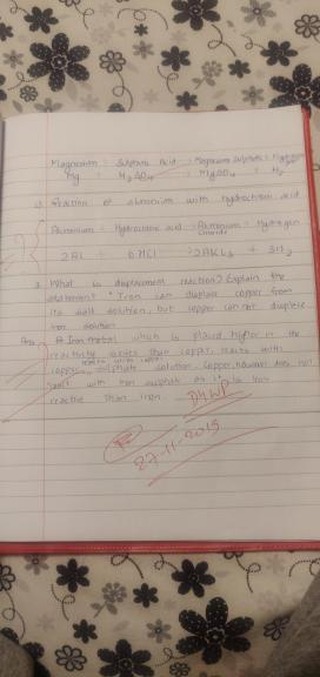 Magnesium + Sulphuric Acid → Magnesium Sulphate + Hydrogen
Mg + H2SO4 → MgSO4 + H2
Reaction of aluminium with hydrochloric acid
Aluminium + Hydrochloric acid → Aluminium + Hydrogen
Chloride
2Al + 6HCl → 2AlCl3 + 3H2
3. What is displacement reaction? Explain the
statement "Iron can displace copper from
its salt solution, but copper can not displace
iron solution
Ans. A Iron metal which is placed higher in the
reactivity series than copper reacts with
copper sulphate solution. Copper, however does not
react with iron sulphate as it is less
reactive than iron
27-11-2019